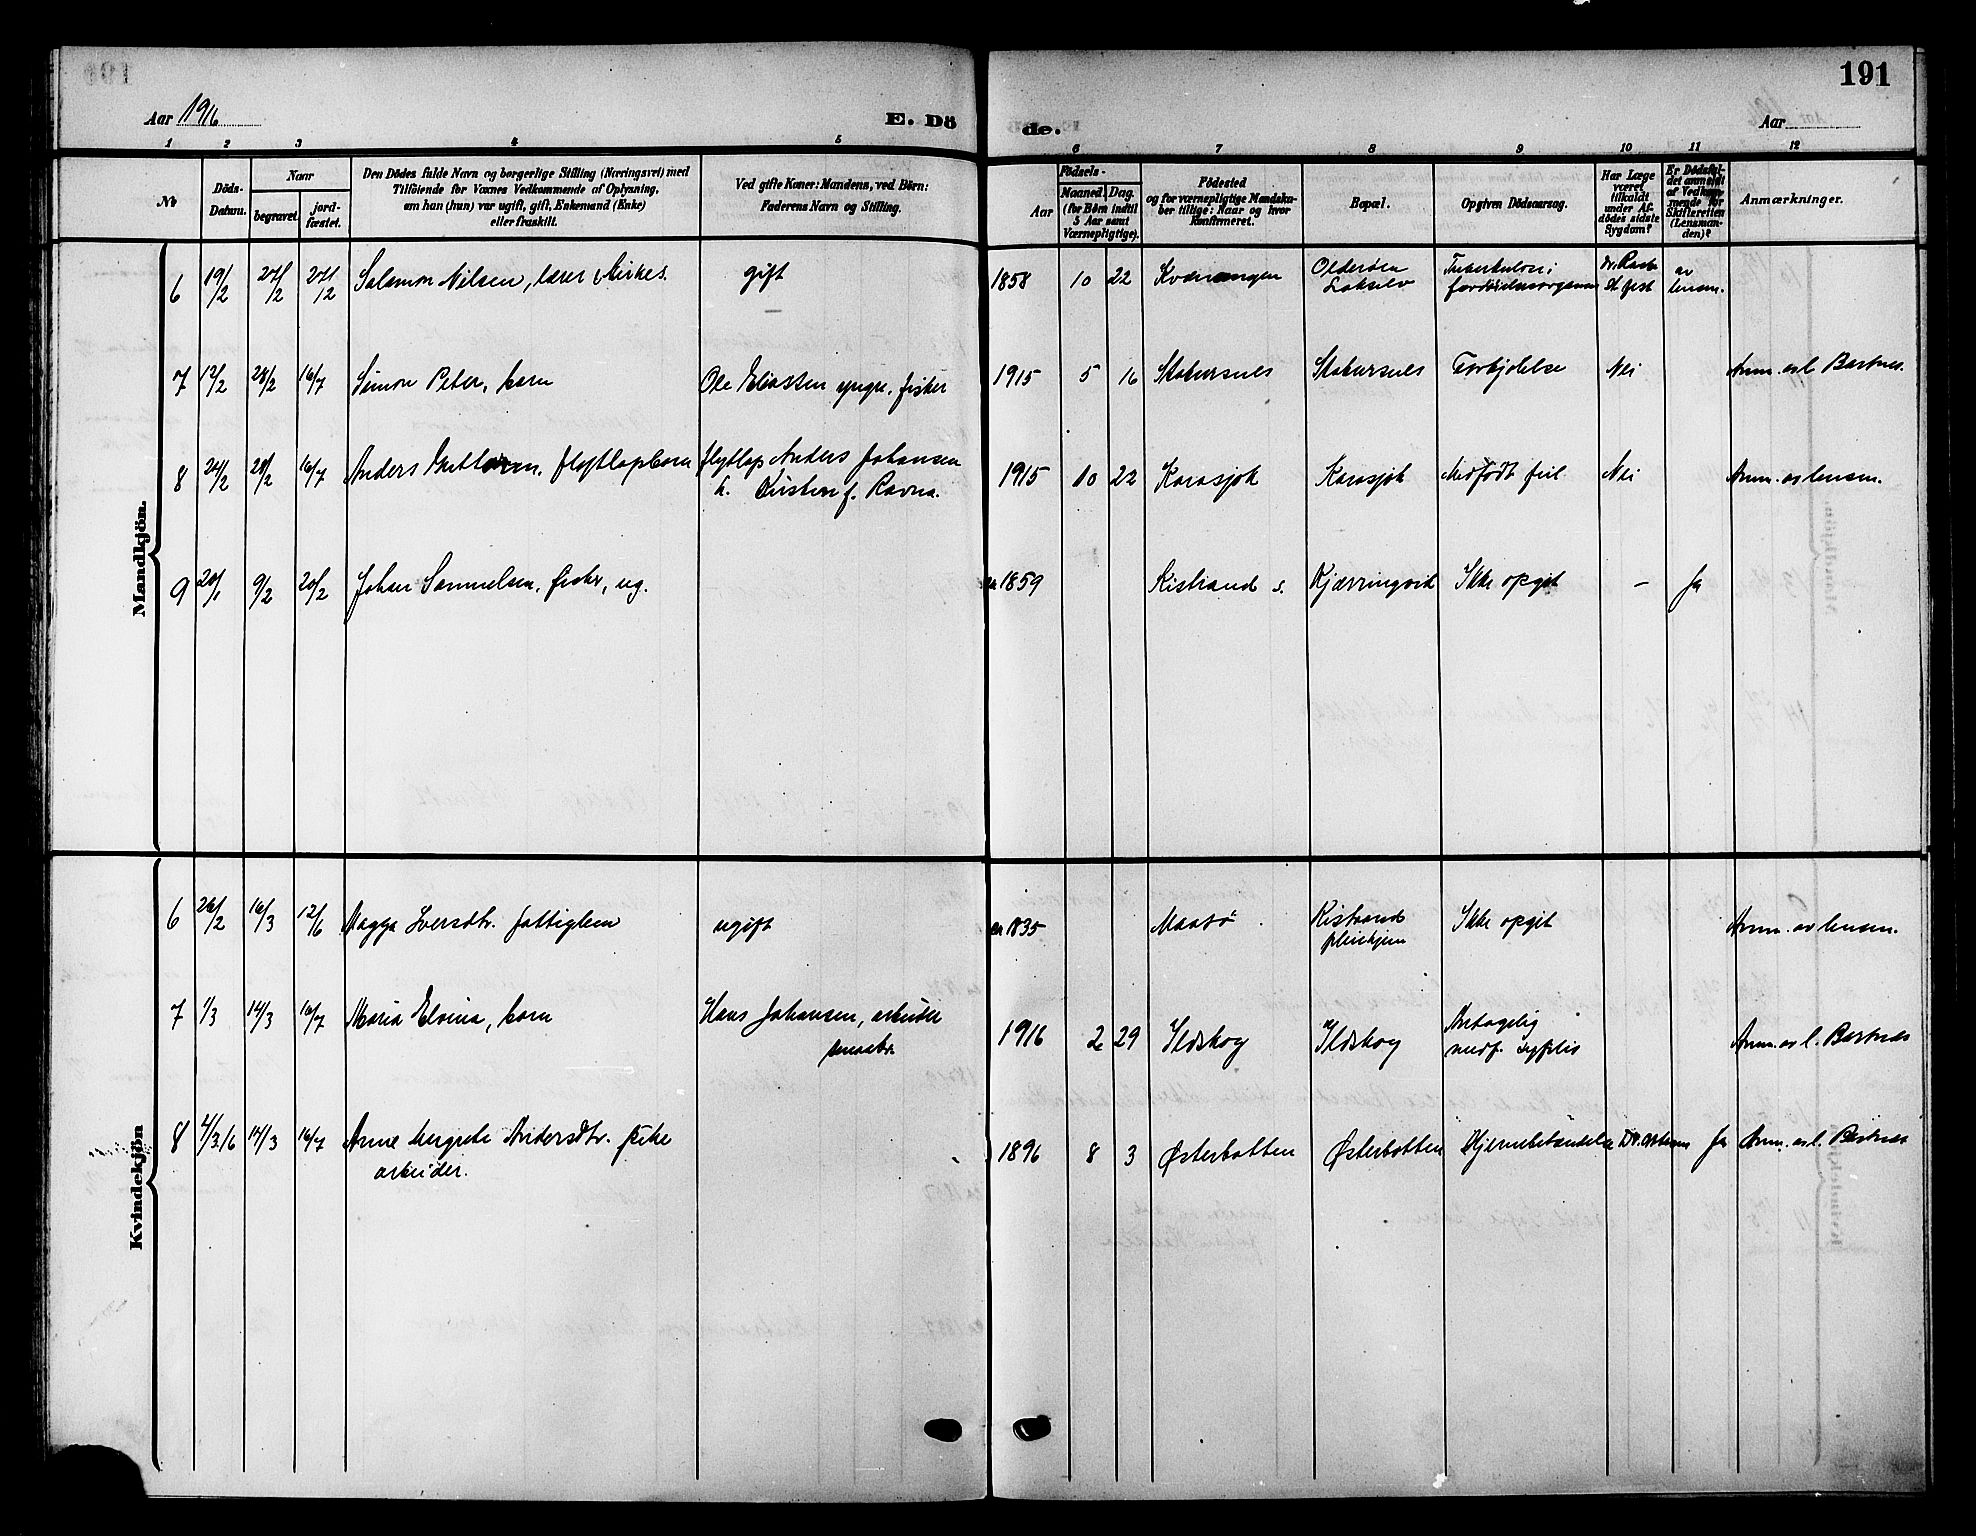 191
Aar 1916
E. Dö
de.
Aar
1 2 3 4 5 6 7 8 9 10 11 12
No
Döds-Datum.
Naar
begravet.
jord-fæstet.
Den Dödes fulde Navn og borgerlige Stilling (Næringsvei) med
Tilföiende for Voxnes Vedkommende af Oplysning,
om han (hun) var ugift, gift, Enkemand (Enke)
eller fraskilt.
Ved gifte Koner: Mandens, ved Börn:
Faderens Navn og Stilling.
Födsels-
Aar
Maaned. Dag.
(for Börn indtil
5 Aar samt
Værnepligtige).
Födested
og for værnepligtige Mandska-
ber tillige: Naar og hvor
konfirmeret.
Bopæl.
Opgiven Dödsaarsag.
Har Læge
været
tilkaldt
under Af-
dödes sidste
Sygdom?
Er Dödsfal-
det anmeldt
af Vedkom-
mende for
Skifteretten
(Lensman-
den)?
Anmærkninger.
Mandkjön.
6 19/2 27/2 27/12 Salamon Nilsen, lærer gift 1858 10 22 Kvænangen Olderöen Tuberkulose i av
Lakselv lensm.
7 12/2 28/2 16/7 Simon Peter, barn Ole Eliassen yngre, fisker 1915 5 16 Stabursnes Stabursnes Forkjölelse Nei Anm. av l. Bastnes.
8 24/2 28/2 16/7 Anders Guttorm, flytlapbarn flytlap Anders Johansen 1915 10 22 Karasjok Karasjok Medfödt feil Nei Anm. av lensm.
h. Kirsten f. Ravna.
9 20/1 9/2 20/2 Johan Samuelsen, fisker, ug. ca 1859 Kistrand s. Kjærringvik Ikke opgit - Ja
Kvindekjön
6 26/2 16/3 12/6 Magga Iversdtr. fattiglem ugift ca 1835 Maasö Kistrand Ikke opgit Anm. av lensm.
pleiehjem
7 1/3 14/3 16/7 Maria Elvina, barn Hans Johansen, arbeider 1916 2 29 Ildskog Ildskog Antagelig Anm. av l. Bastnes
smaabr. medf. syfilis
8 4/3.16 14/3 16/7 Anne Margrete Andersdtr. pike 1896 8 3 Østerbotten Østerbotten Hjernebetændelse Ja Anm. av l. Bastnes
arbeider.